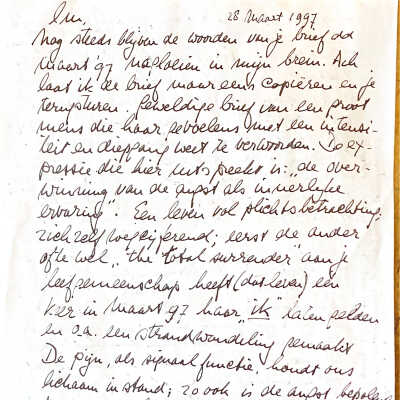 Lm, 28 Maart 1997
Nog steeds blijven de woorden van je brief dd
maart 97 nagloeien in mijn brein. Ach
laat ik de brief maar eens copiëren en je
terugsturen. Geweldige brief van een groot
mens die haar gevoelens met een intensi-
teit en diepgang weet te verwoorden. De ex-
pressie die hier uitspreekt is: "de over-
winning van de angst als innerlijke
ervaring". Een leven vol plichtsbetrachting,
zichzelf wegcijferend; eerst de ander
ofte wel "the total surrender" aan je
leefgemeenschap heeft (dat leven) een
keer in maart 97 haar "ik" laten gelden
en o.a. een strandwandeling gemaakt
De pijn, als signaalfunctie, houdt ons
lichaam in stand; zo ook is de angst